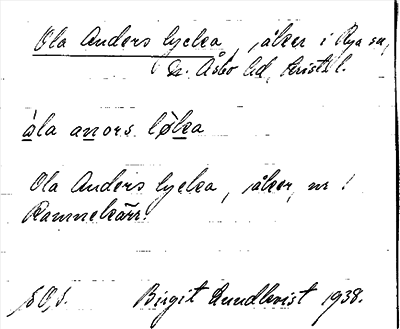 Ola Anders lycka, åker i Rya sn,
N. Åsbo hd, Kristi l.
àla anors lø̀ka
Ola Anders lycka, åker, nr 1
Rammekärr.
Birgit Lundkvist 1938.